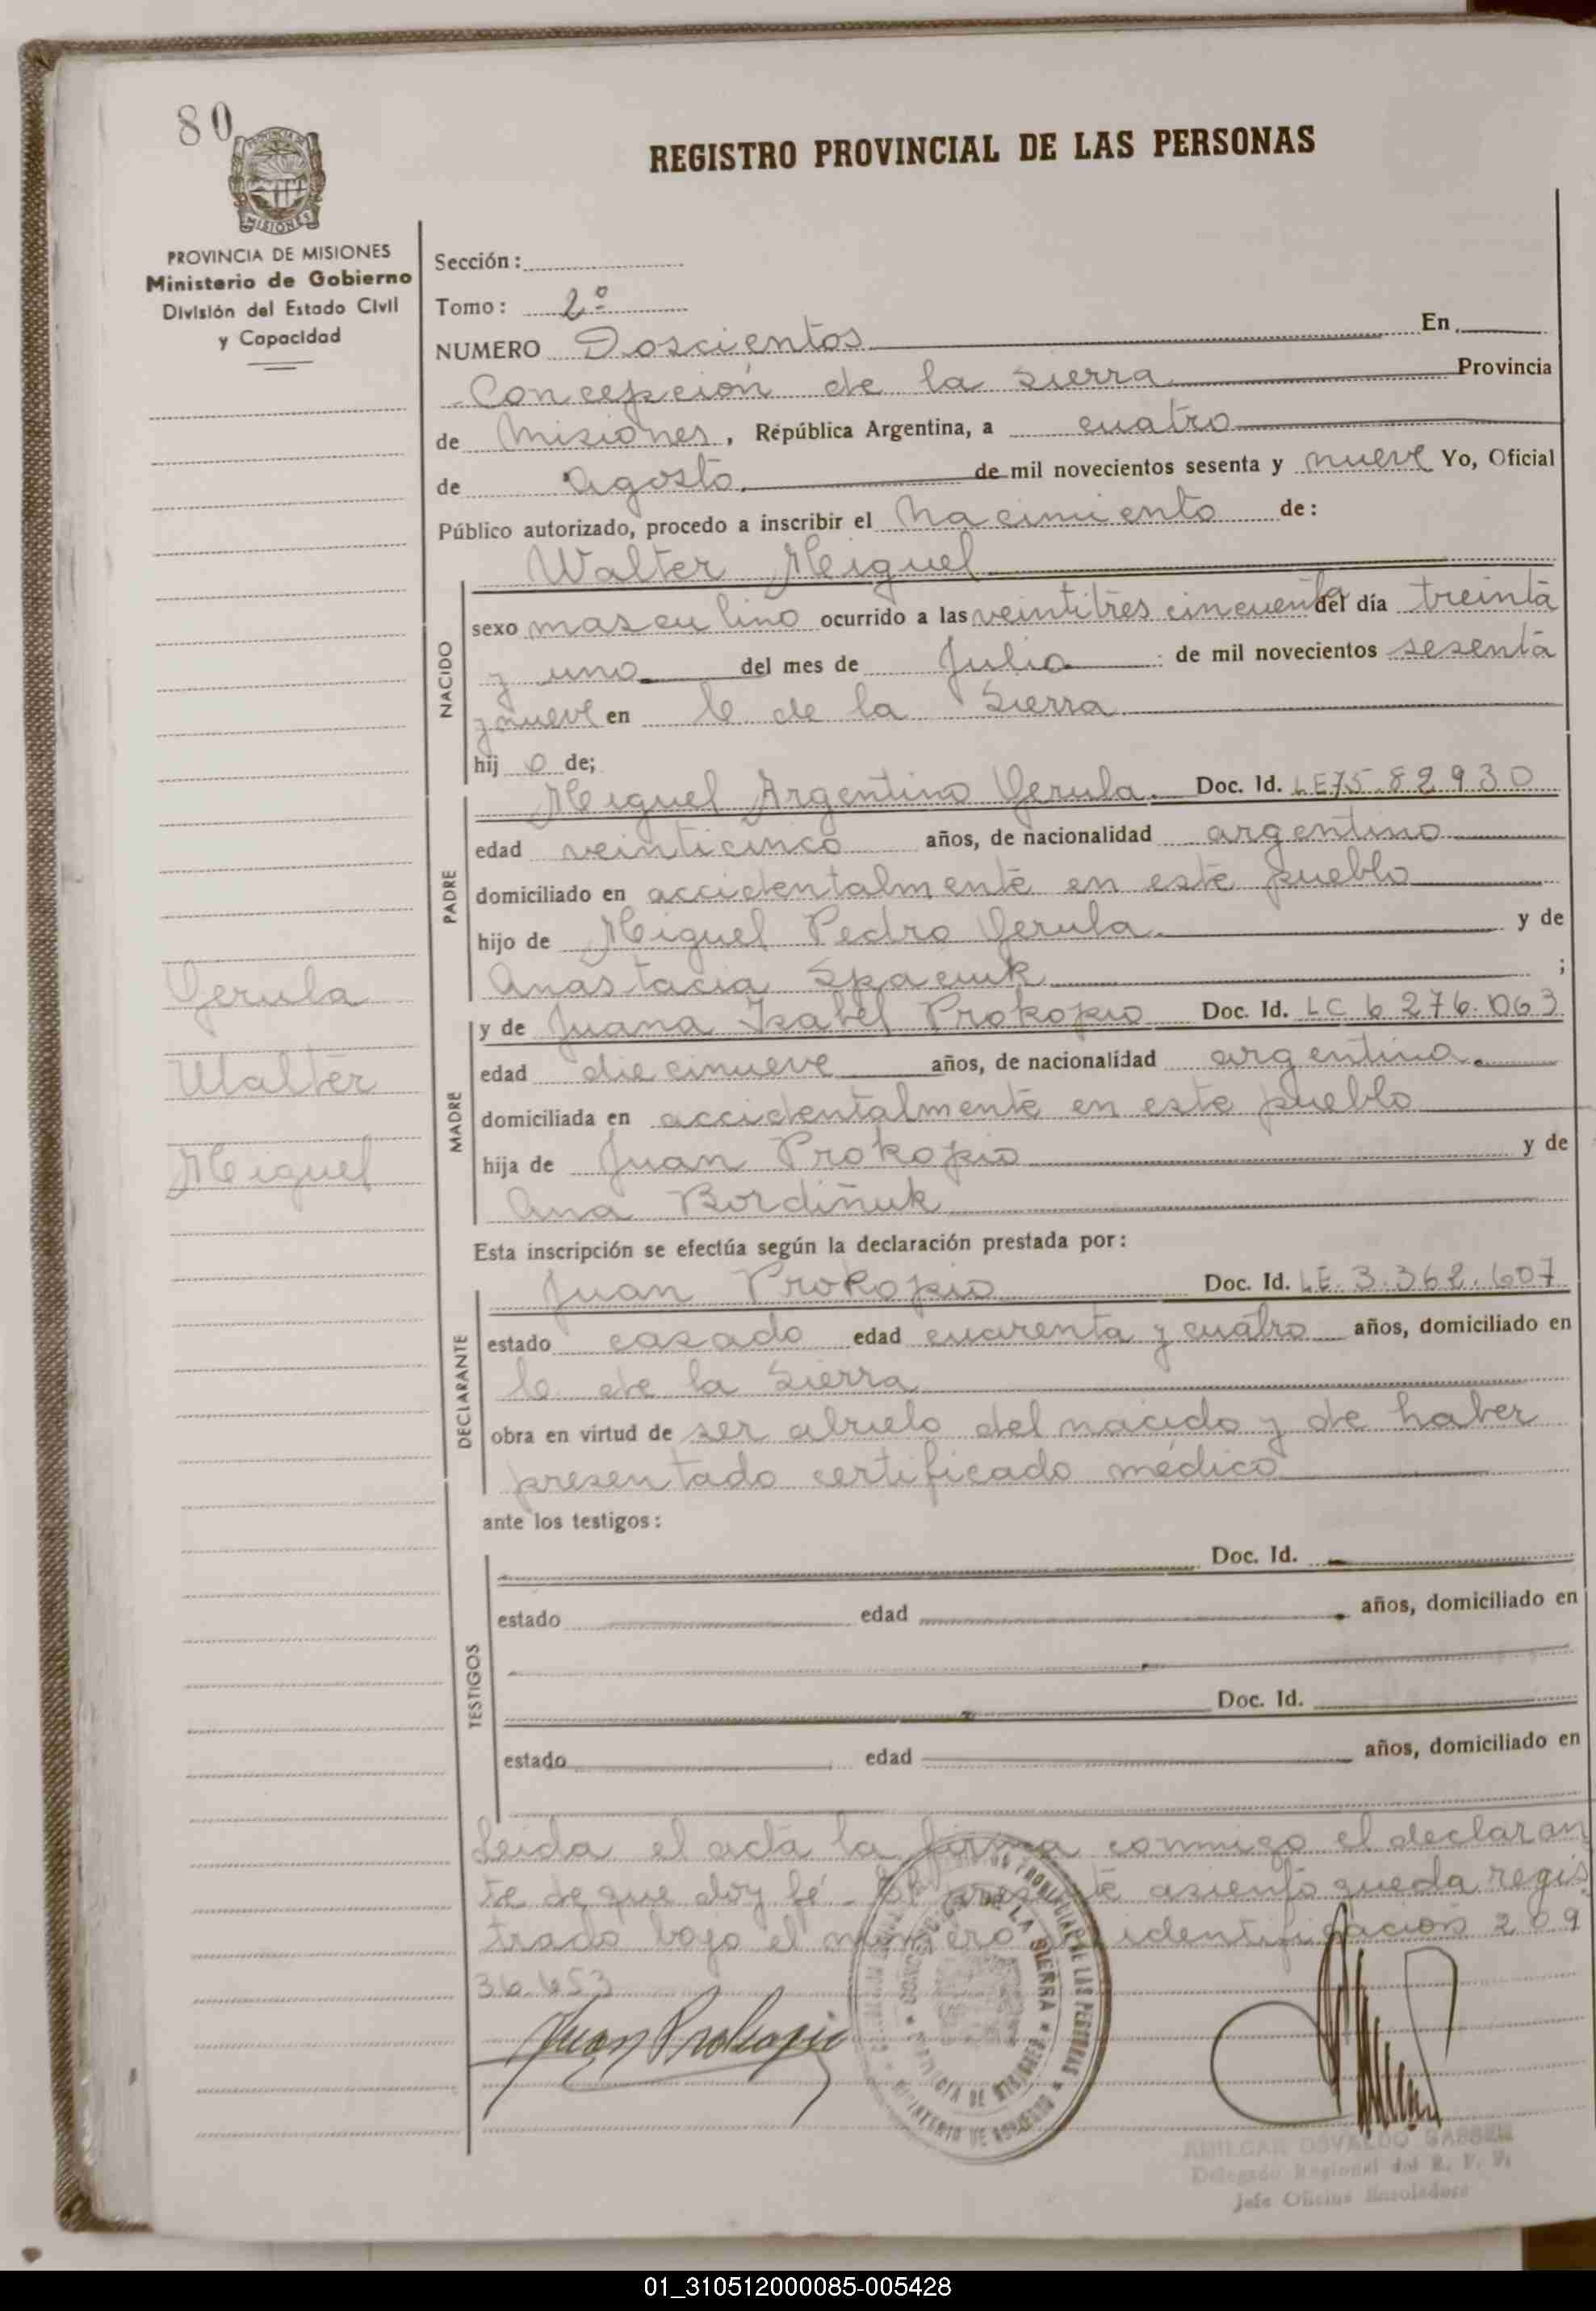 80
REGISTRO PROVINCIAL DE LAS PERSONAS
PROVINCIA DE MISIONES
Ministerio de Gobierno
División del Estado Civil
y Capacidad
Sección:
Tomo: 2º
NUMERO Doscientos En
Concepción de la Sierra Provincia
de Misiones, República Argentina, a cuatro
de agosto. de mil novecientos sesenta y nueve Yo, Oficial
Público autorizado, procedo a inscribir el nacimiento de:
Walter Miguel
NACIDO
sexo masculino ocurrido a las veintitres cincuenta del día treinta
y uno del mes de Julio de mil novecientos sesenta
y nueve en C de la Sierra
hij o de;
PADRE
Miguel Argentino Gerula. Doc. Id. LE 75.82930
edad veinticinco años, de nacionalidad argentino
domiciliado en accidentalmente en este pueblo
hijo de Miguel Pedro Gerula. y de
Anastacia Spaciuk ;
Gerula
Walter
Miguel
MADRE
y de Juana Isabel Prokopio Doc. Id. LC 6.276.063
edad diecinueve años, de nacionalidad argentina.
domiciliada en accidentalmente en este pueblo
hija de Juan Prokopio y de
Ana Bordiñuk
Esta inscripción se efectúa según la declaración prestada por:
DECLARANTE
Juan Prokopio Doc. Id. LE. 3.362.607
estado casado edad cuarenta y cuatro años, domiciliado en
C de la Sierra
obra en virtud de ser abuelo del nacido y de haber
presentado certificado médico
ante los testigos:
TESTIGOS
Doc. Id.
estado edad años, domiciliado en
Doc. Id.
estado edad años, domiciliado en
Leida el acta la firma conmigo el declaran
te de que doy fé. El presente asiento queda regis
trado bajo el número de identificación 209
36.653
Juan Prokopio
DE LA SIERRA
PROVINCIAL DE LAS PERSONAS
MINISTERIO DE GOBIERNO
AMILCAR OSVALDO
Delegado Regional del R. P. P.
Jefe Oficina Enroladora
01_310512000085-005428